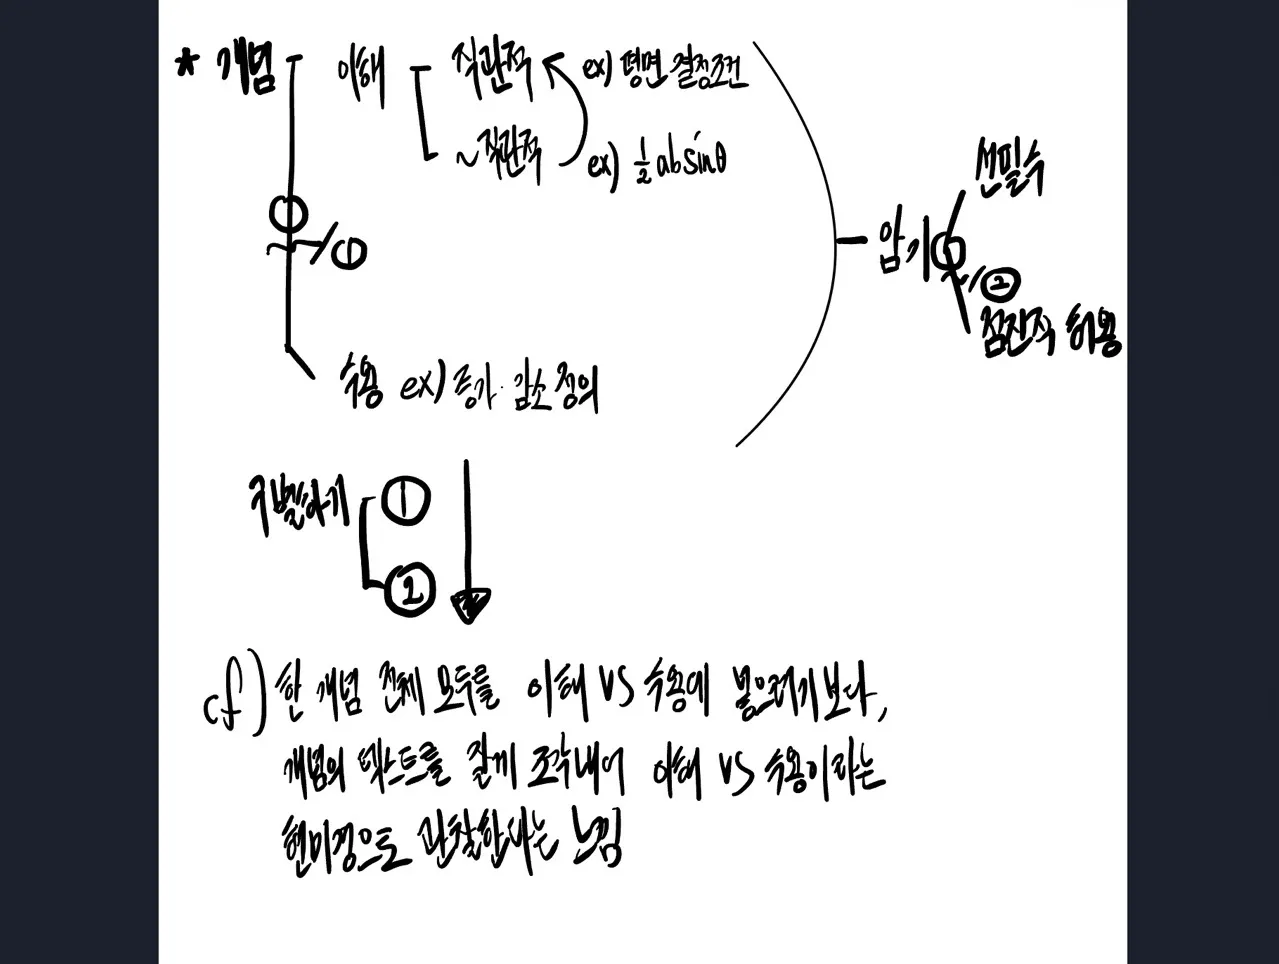 * 개념
이해
직관적
ex) 평면 결정조건
~직관적
ex) 1/2 ab sinθ
①
수용 ex) 증가·감소 정의
암기
선필수
②
점진적 허용
구별하기
①
②
cf) 한 개념 전체 모두를 이해 VS 수용에 넣으려기보다,
개념의 텍스트를 잘게 조각내어 이해 VS 수용이라는
현미경으로 관찰한다는 느낌